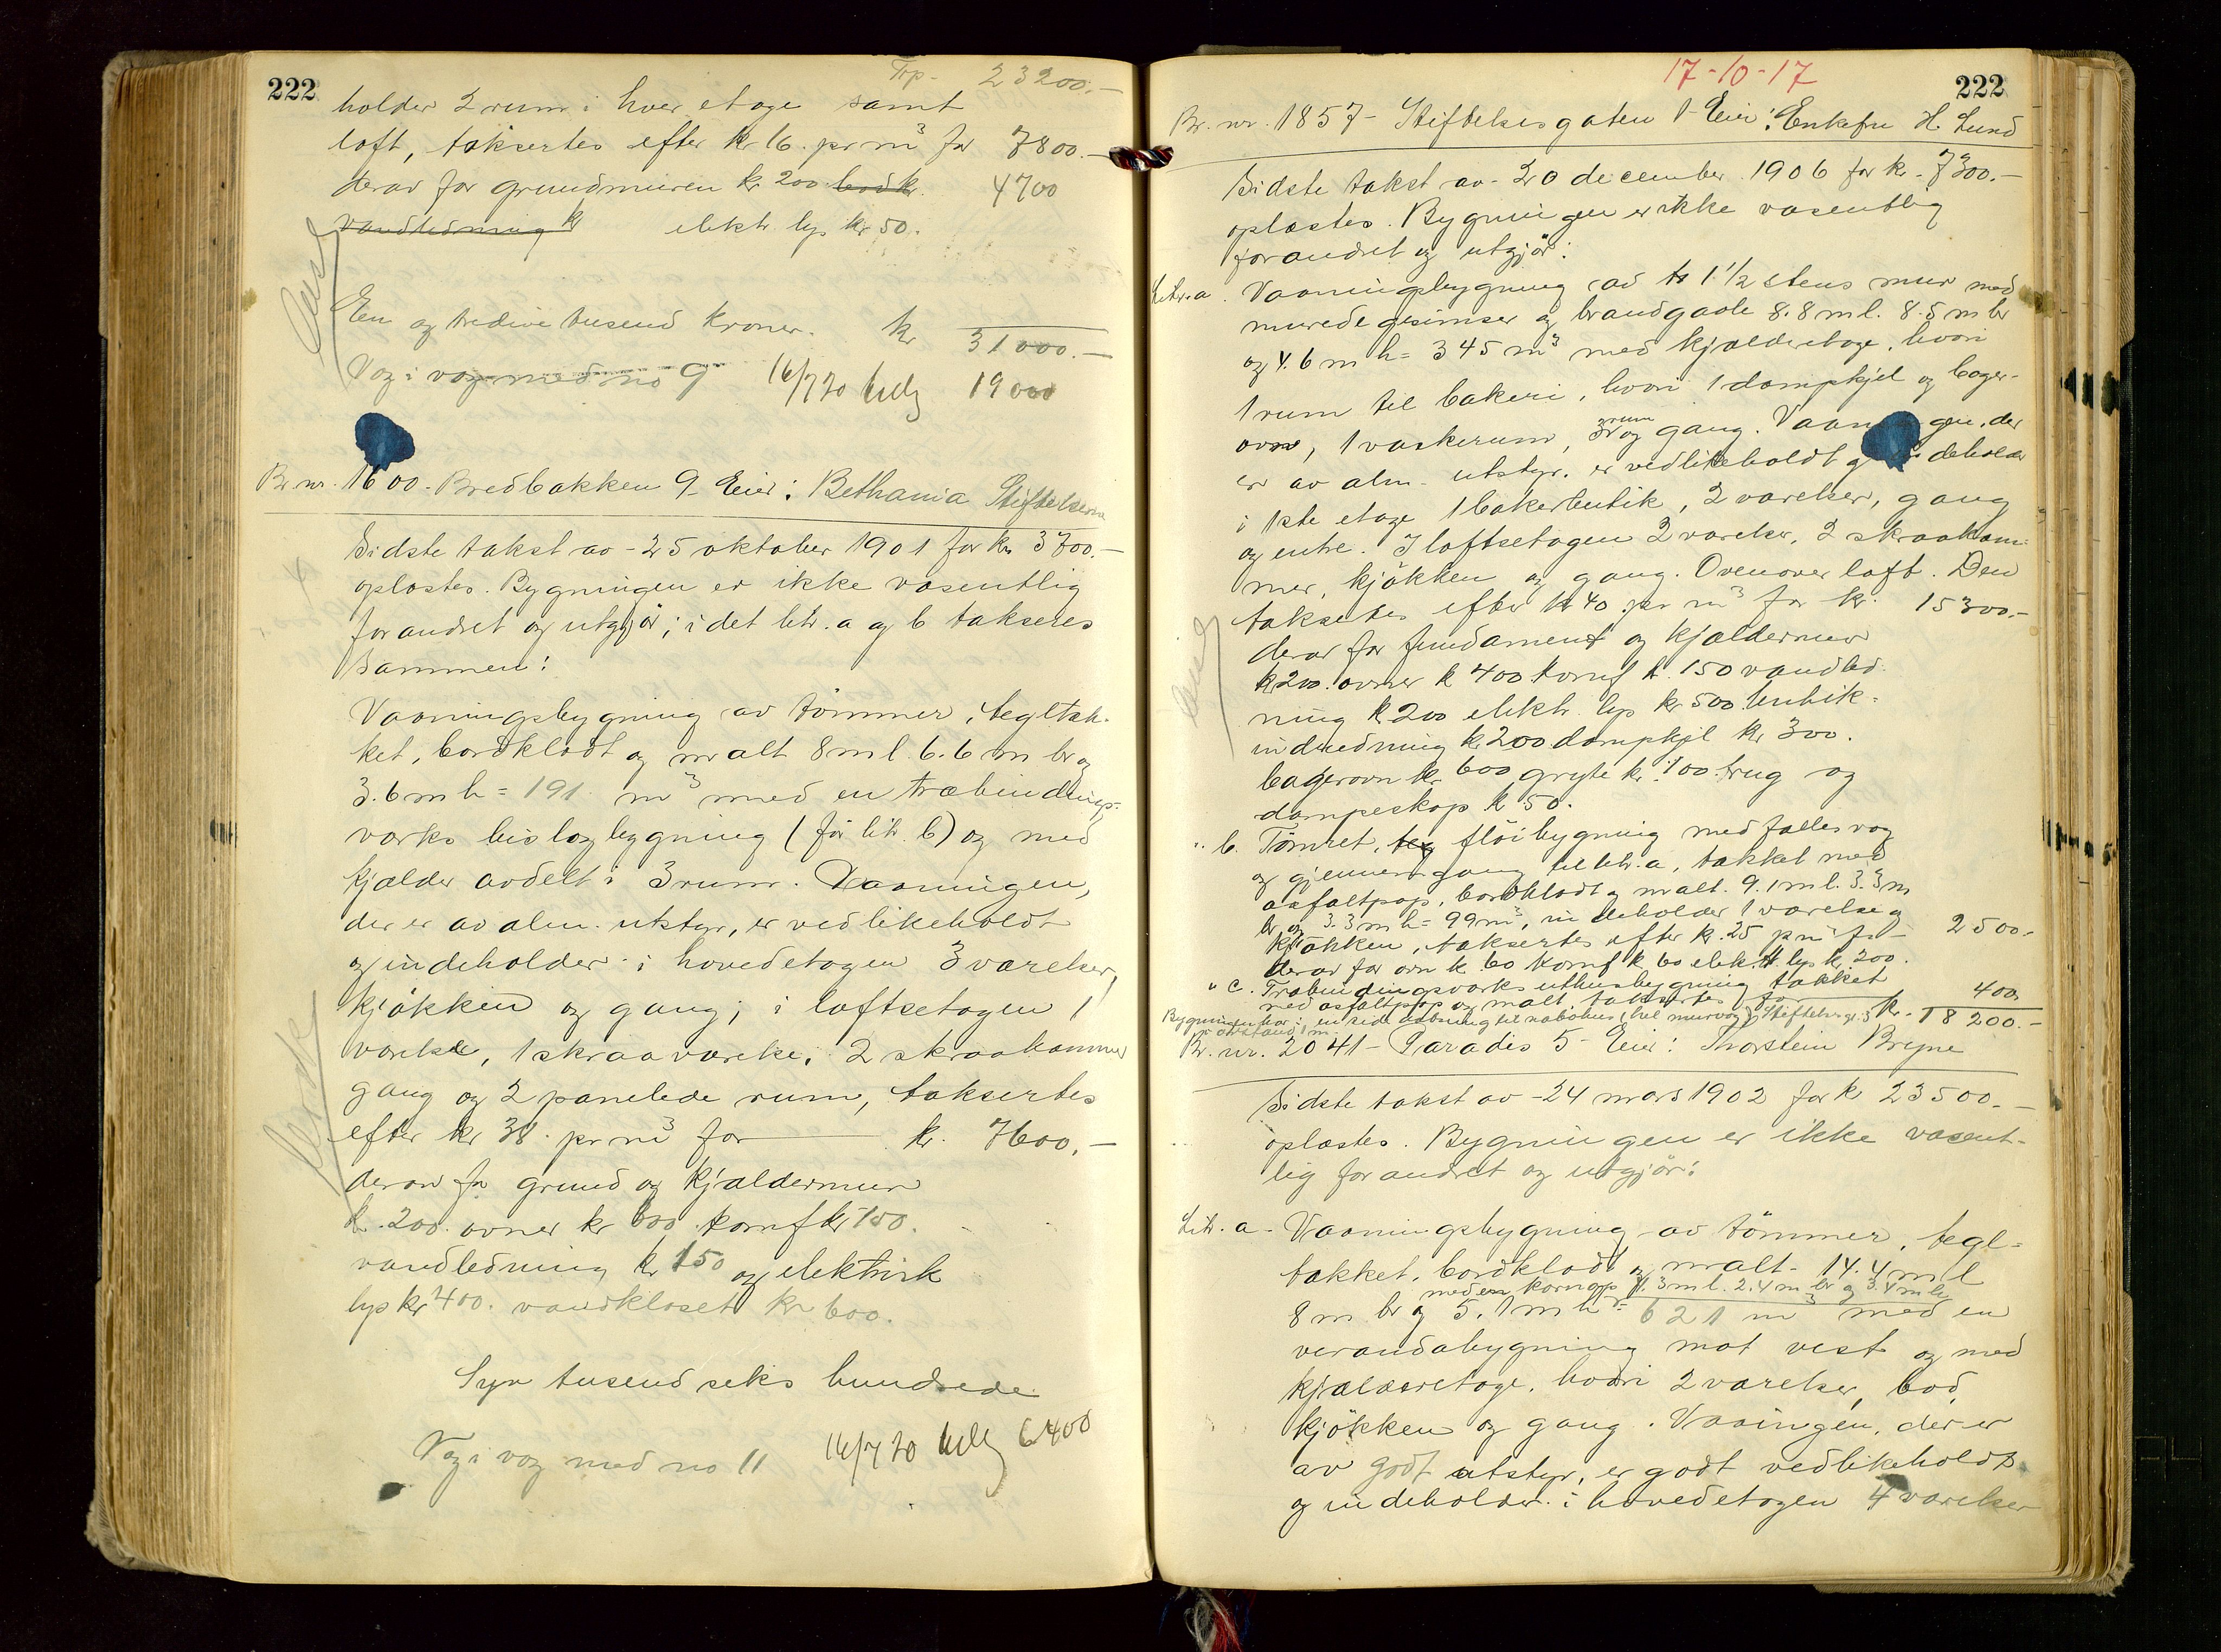 222
Trp- 23200.-
holder 2 rum i hver etage samt
loft, taksertes efter kr 16. pr m³ for 7800.-
derav for grundmuren kr 200 bod kr. 4700
vandledning kr elektr. lys kr 50.
En og tredive tusend kroner. kr 31000.-
Væg i væg med no 9 16/7 20 19000
Br. nr. 1600. Bredbakken 9- Eier: Bethania Stiftelserne
Sidste takst av - 25 oktober 1901 for kr 3300.-
oplæstes. Bygningen er ikke væsentlig
forandret og utgjör; idet litr. a og b takseres
sammen:
Vaaningsbygning av tömmer, tegltæk-
ket, bordklædt og malt 8 m l. 6.6 m br og
3.6 m h = 191 m³ med en træbindings-
verks bislagbygning (för litr. b) og med
kjælder avdelt i 3 rum. Vaaningen,
der er av alm. utstyr, er vedlikeholdt
og indeholder i hovedetagen 3 værelser,
kjökken og gang; i loftsetagen 1
værelse, 1 skraaværelse, 2 skraakammer
gang og 2 panelede rum, taksertes
efter kr 38. pr m³ for kr. 7600.-
derav for grund og kjældermur
kr. 200. ovner kr 600. komf kr 150.
vandledning kr 150 og elektrisk
lys kr 400. vandkloset kr 600.
Syv tusend seks hundrede
Væg i væg med no 11 16/7 20 6400
17-10-17
222
Br. nr. 1857- Stiftelsesgaten 1- Eier: Enkefru H. Lund
Sidste takst av - 20 december 1906 for kr. 7300.-
oplæstes. Bygningen er ikke væsentlig
forandret og utgjör:
Litr. a. Vaaningsbygning av 1 1/2 stens mur med
murede gesimser og brandgavle 8.8 m l. 8.5 m br
og 4.6 m h = 345 m³ med kjælderetage, hvori
1 rum til bakeri, hvori 1 dampkjel og bager-
ovn, 1 vaskerum, rum og gang. Vaaningen, der
er av alm. utstyr, er vedlikeholdt og indeholder
i 1ste etage 1 bakerbutik, 2 værelser, gang
og entre. I loftsetagen 2 værelser, 2 skraakam-
mer, kjökken og gang. Ovenover loft. Den
taksertes efter kr 40 pr m³ for kr. 15300.-
derav for fundament og kjældermur
kr 200. ovner kr 400 komf kr. 150 vandled-
ning kr 200 elektr. lys kr 500. butik-
indredning kr 200 dampkjel kr 300.
bagerovn kr 600 gryte kr 100. trug og
dampeskap kr 50.
" b. Tömret, teg flöibygning med fælles væg
og gjennemgang til litr. a, tækket med
asfaltpap, bordklædt og malt. 9.1 m l. 3.3 m
br og 3.3 m h = 99 m³, indeholder 1 værelse og
kjökken, taksertes efter kr. 25 pr m³ for - 2500.-
derav for ovn kr. 60 komf kr 60 elektr. lys kr. 200.
" c. Træbindingsverks uthusbygning tækket
med asfaltpap og malt, taksertes for 400.
Bygningen har i en side aabning til nabohus (hel murvæg) Stiftelsesgt. 3 Kr. 18200.-
i avstand 1 m.
Br. nr. 2041- Paradis 5- Eier: Thorstein Bryne
Sidste takst av - 24 mars 1902 for kr 23500.-
oplæstes. Bygningen er ikke væsent-
lig forandret og utgjör:
Litr. a- Vaaningsbygning av tömmer, tegl-
tækket, bordklædt og malt- 14.4 m l
med en karnap 4.3 m l. 2.4 m br og 3.4 m h
8 m br og 5.1 m h = 621 m³ med en
verandabygning mot vest og med
kjælderetage, hvori 2 værelser, bod
kjökken og gang. Vaaningen, der er
av godt utstyr, er godt vedlikeholdt
og indeholder i hovedetagen 4 værelser